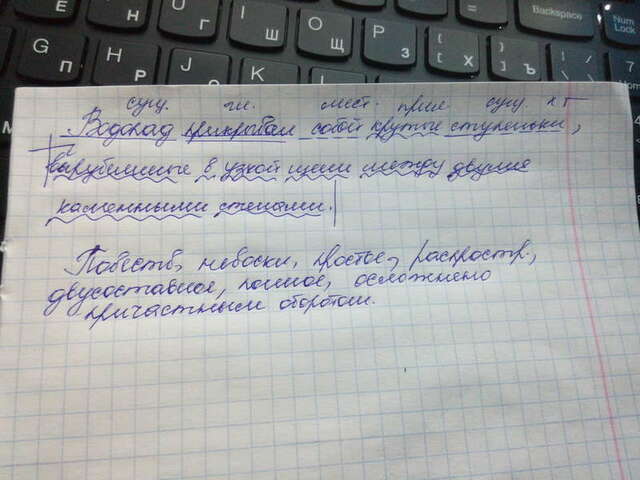 Backspace
Num Lock
Е Н
U Г
I Ш
O Щ
P З
{ [ Х
} ] Ъ
7 Home
G П
H Р
J
K
сущ. гл. мест. прил сущ.
Водопад прикрывал собой крутые ступеньки,
вырубленные в узкой щели между двумя
каменными стенами.
Повеств., невоскл., простое, распростр.,
двусоставное, полное, осложнено
причастным оборотом.